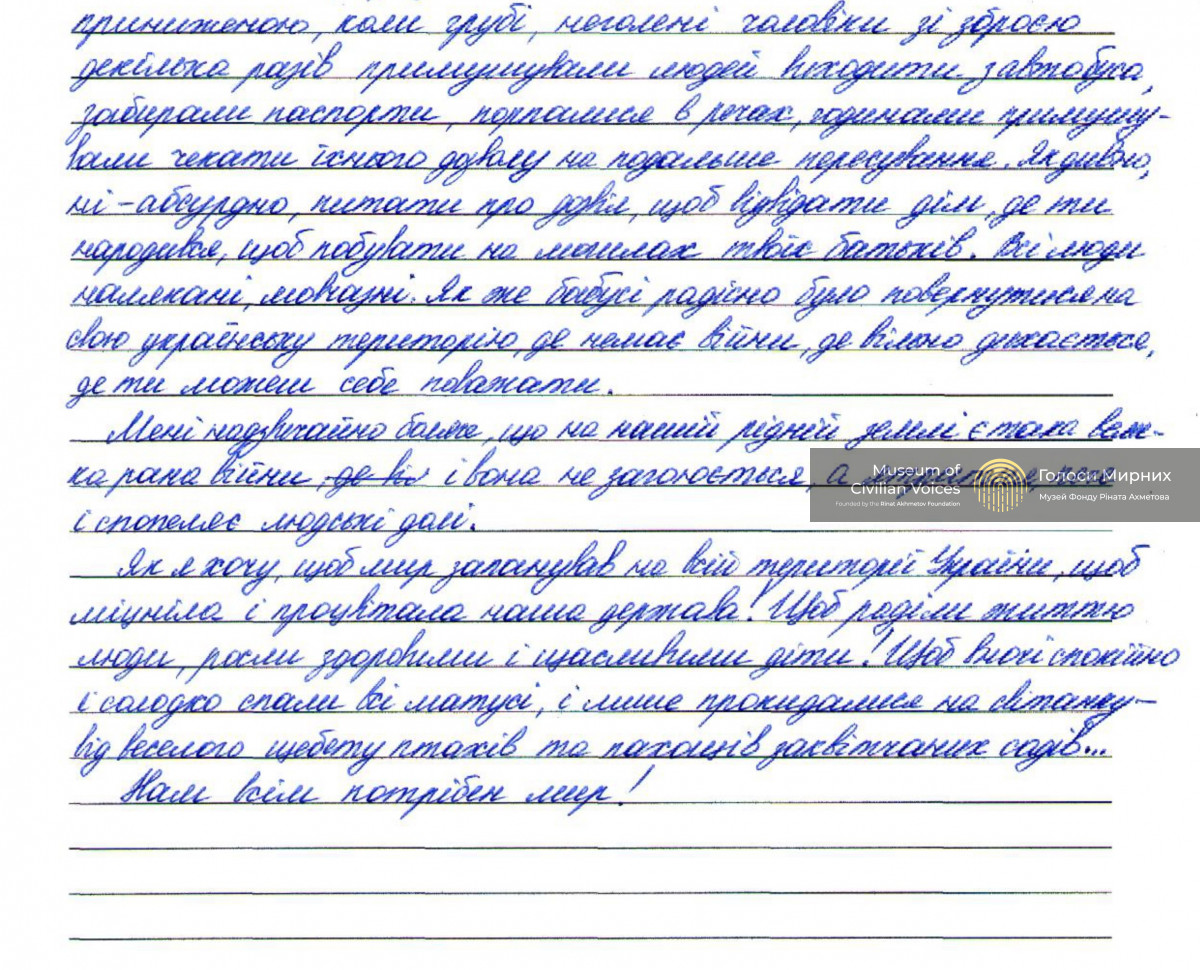 приниженою, коли грубі, неголені чоловіки зі зброєю
декілька разів примушували людей виходити з автобуса,
забирали паспорти, порпалися в речах, годинами примушу-
вали чекати їхнього дозволу на подальше пересування. Як дивно,
ні - абсурдно, питати про дозвіл, щоб відвідати дім, де ти
народився, щоб побувати на могилах твоїх батьків. Всі люди
налякані, мовчазні. Як же бабусі радісно було повернутися на
свою українську територію, де немає війни, де вільно дихається,
де ти можеш себе поважати.
Мені надзвичайно боляче, що на нашій рідній землі є така важ-
ка рана війни, де ві і вона не загоюється, а
і спопеляє людські долі.
Як я хочу, щоб мир запанував на всій території України, щоб
міцніла і процвітала наша держава! Щоб раділи життю
люди, росли здоровими і щасливими діти! Щоб вночі спокійно
і солодко спали всі матусі, і лише прокидалися на світанку -
від веселого щебету птахів та пахощів заквітчаних садів...
Нам всім потрібен мир!
Museum of
Civilian Voices
Founded by the Rinat Akhmetov Foundation
Голоси Мирних
Музей Фонду Ріната Ахметова